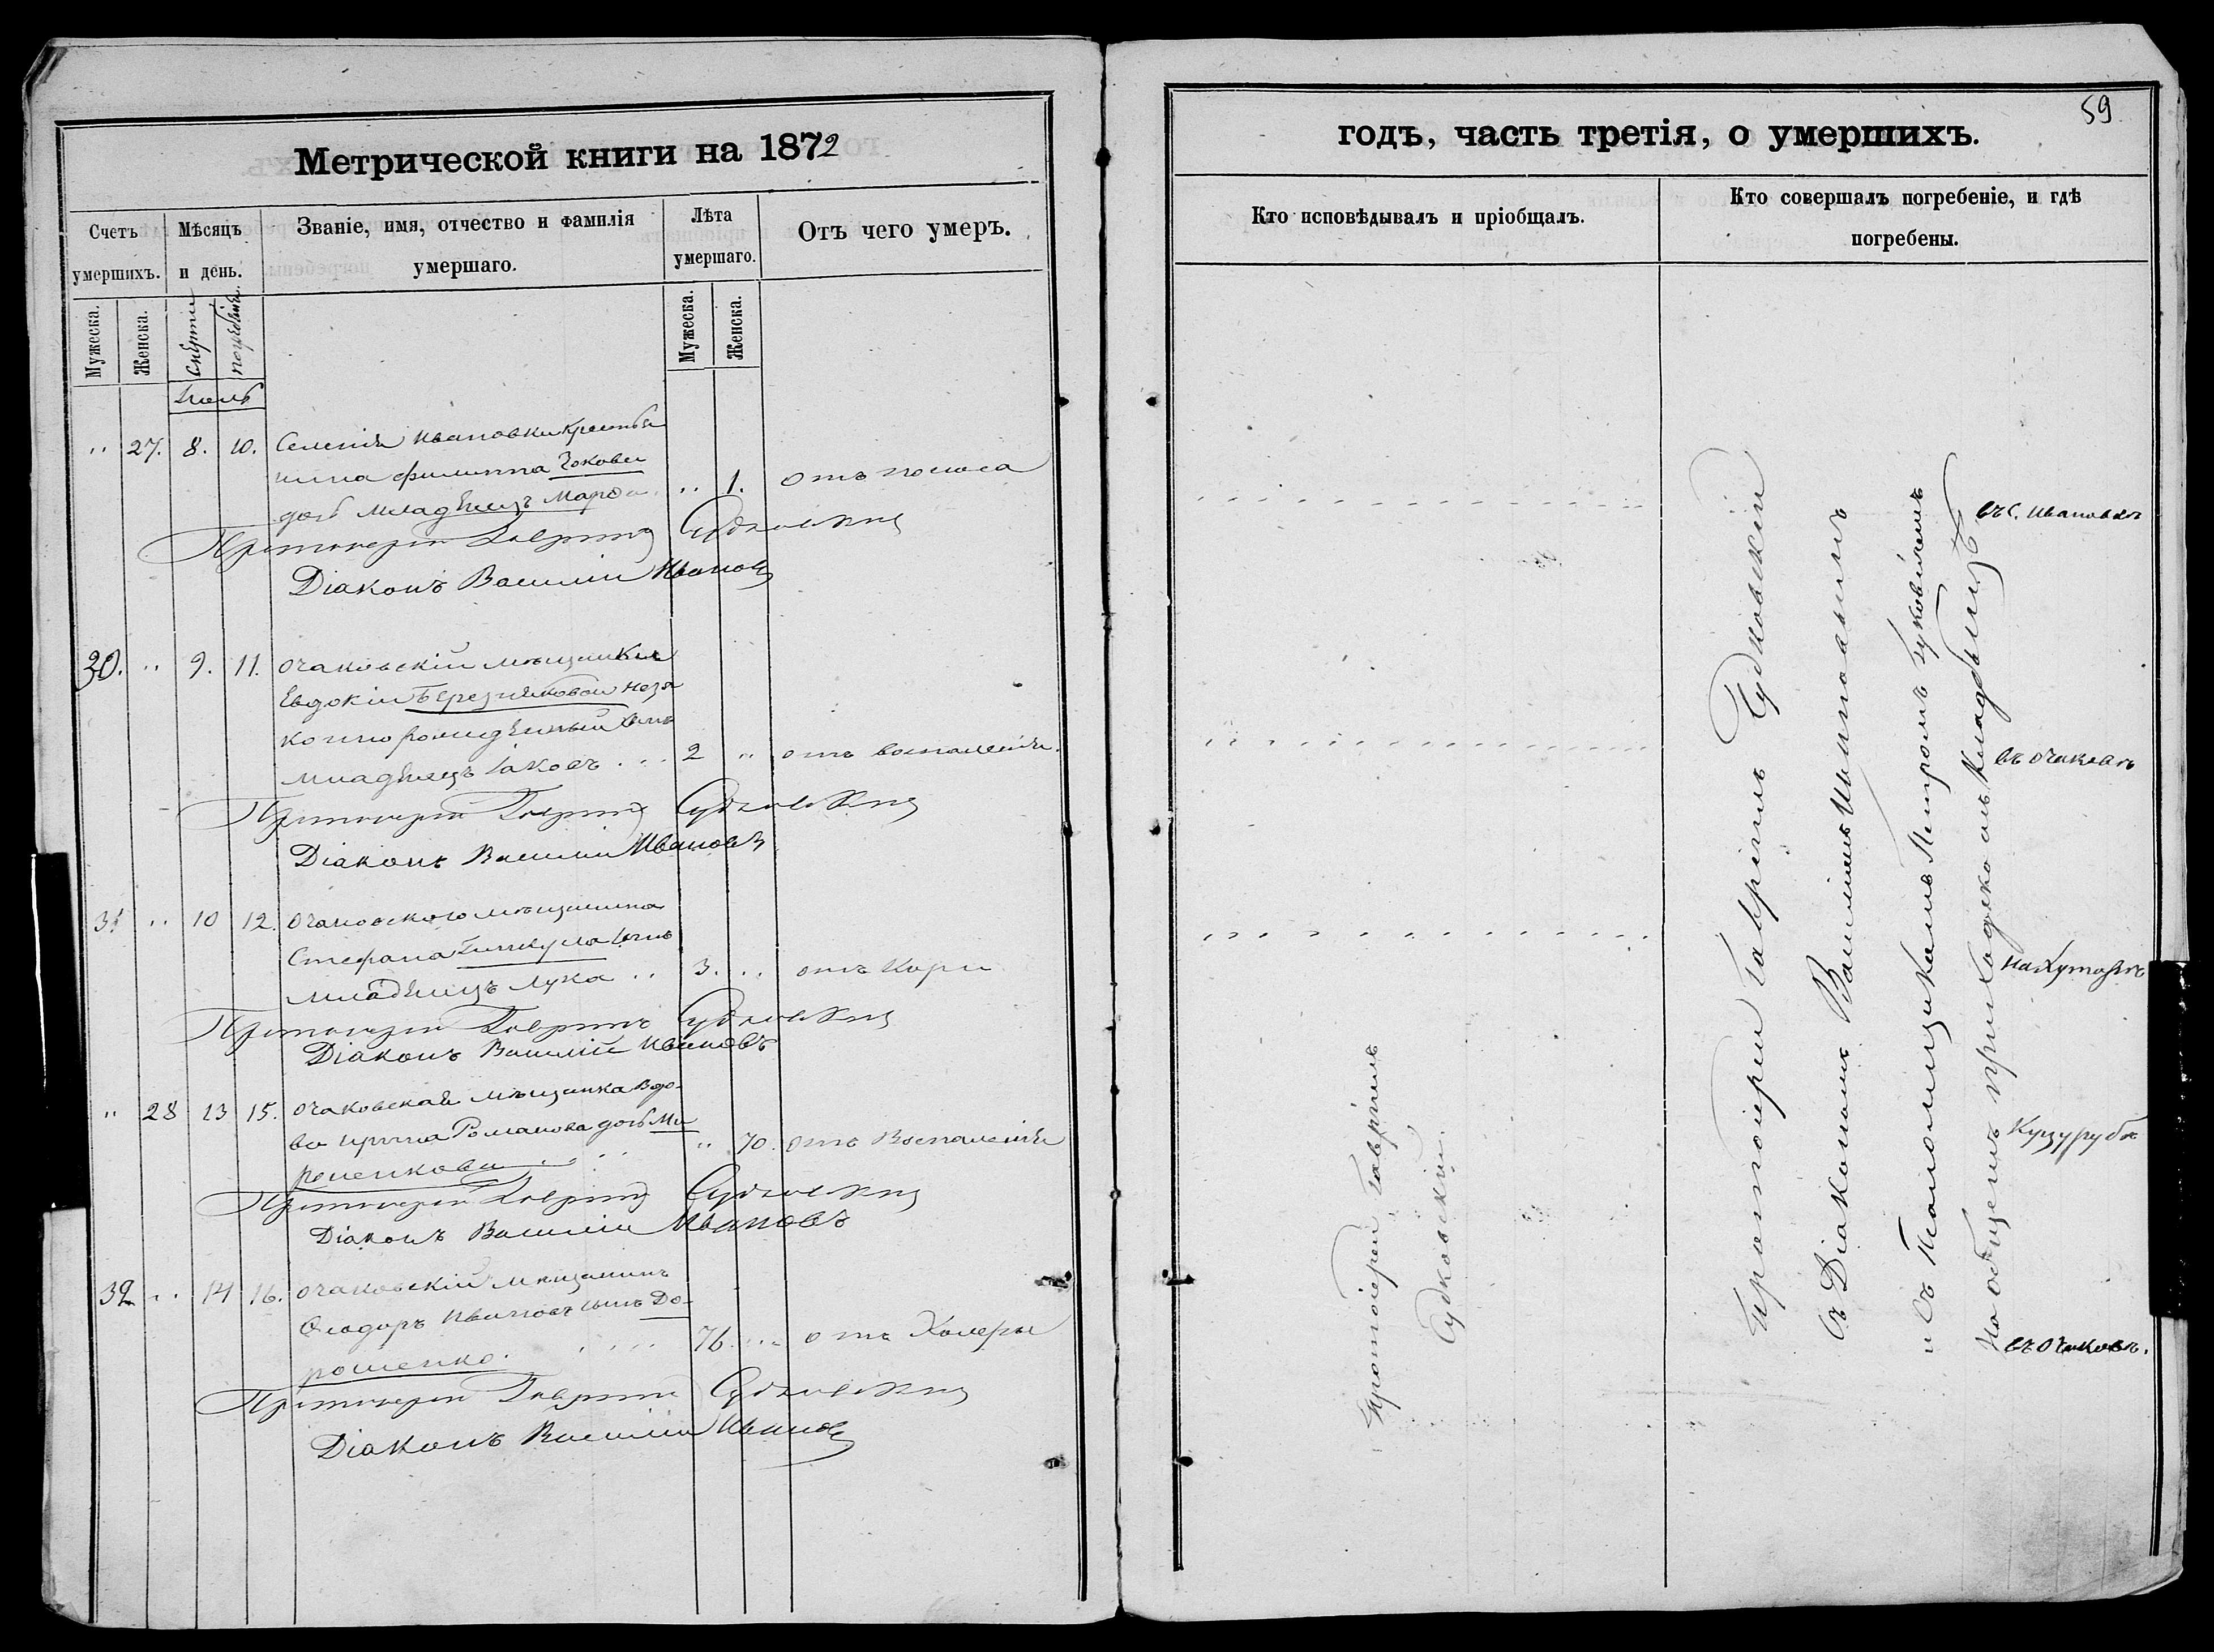 Метрической книги на 1872
Счетъ умершихъ.
Мѣсяцъ и день.
Званіе, имя, отчество и фамилія умершаго.
Лѣта умершаго.
Отъ чего умеръ.
Мужеска.
Женска.
Смерти
погребенія.
Мужеска.
Женска.
Іюль
" 27. 8. 10. Селенія Ивановки крестья
нина Филиппа
дочь младенецъ Марѳа. " 1. отъ поноса
Протоіерей Гавріилъ Судковскій
Діаконъ Василій Ивановъ
30. " 9. 11. Очаковскій мѣщанки
Евдокіи Березняковой неза
конно рожденный сынъ
младенецъ Іаковъ . . . 2 " отъ воспаленія.
Протоіерей Гавріилъ Судковскій
Діаконъ Василій Ивановъ
31 " 10 12. Очаковского мѣщанина
Стефана сынъ
младенецъ Лука . . 3. . . отъ Кори
Протоіерей Гавріилъ Судковскій
Діаконъ Василій Ивановъ
" 28 13 15. Очаковская мѣщанка вдо-
ва Ирина Романова дочь Ми
роненкова . . . " 70. отъ Воспаленія
Протоіерей Гавріилъ Судковскій
Діаконъ Василій Ивановъ
32 . . 14 16. Очаковскій мѣщанинъ
Ѳеодоръ Ивановъ сынъ До-
рошенко. 76. . . отъ Холеры
Протоіерей Гавріилъ Судковскій
Діаконъ Василій Ивановъ
59
годъ, часть третія, о умершихъ.
Кто исповѣдывалъ и пріобщалъ.
Кто совершалъ погребеніе, и гдѣ
погребены.
Протоіерей Гавріилъ
Судковскій.
Протоіерей Гавріилъ Судковскій
съ Діакономъ Василіемъ Ивановымъ
и съ Псаломщикомъ Петромъ
На общемъ приходскомъ кладбищѣ
въ с. Ивановкѣ
въ Очаковѣ
на Хуторѣ
Куцурубѣ
въ Очаковѣ.